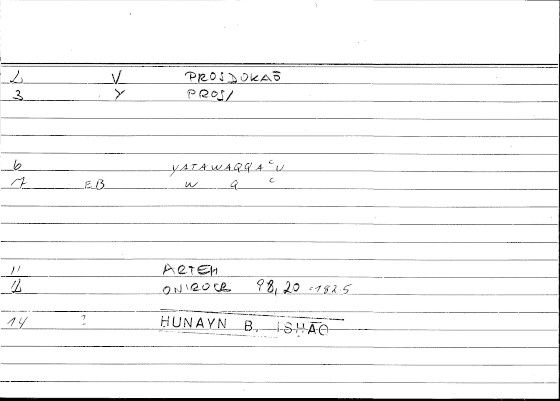 2 V PROSDOKAŌ
3 Y PROS/
6 YATAWAQQAʿU
7 EB W Q ʿ
11 ARTEM
12 ONIROCR 98,20 =182.5
14 ? HUNAYN B. ISHAQ